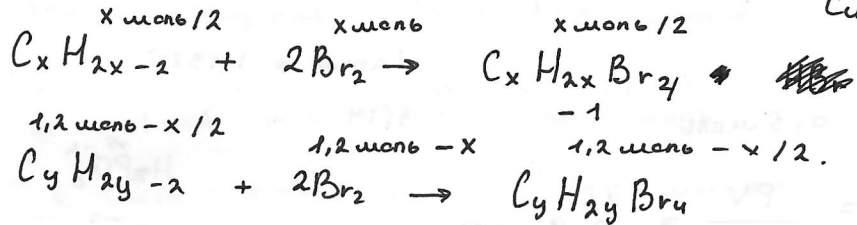 Cu
x моль/2 x моль x моль/2
CxH2x-2 + 2Br2 → CxH2xBr4
-1
1,2 моль - x/2 1,2 моль - x 1,2 моль - x/2.
CyH2y-2 + 2Br2 → CyH2yBr4